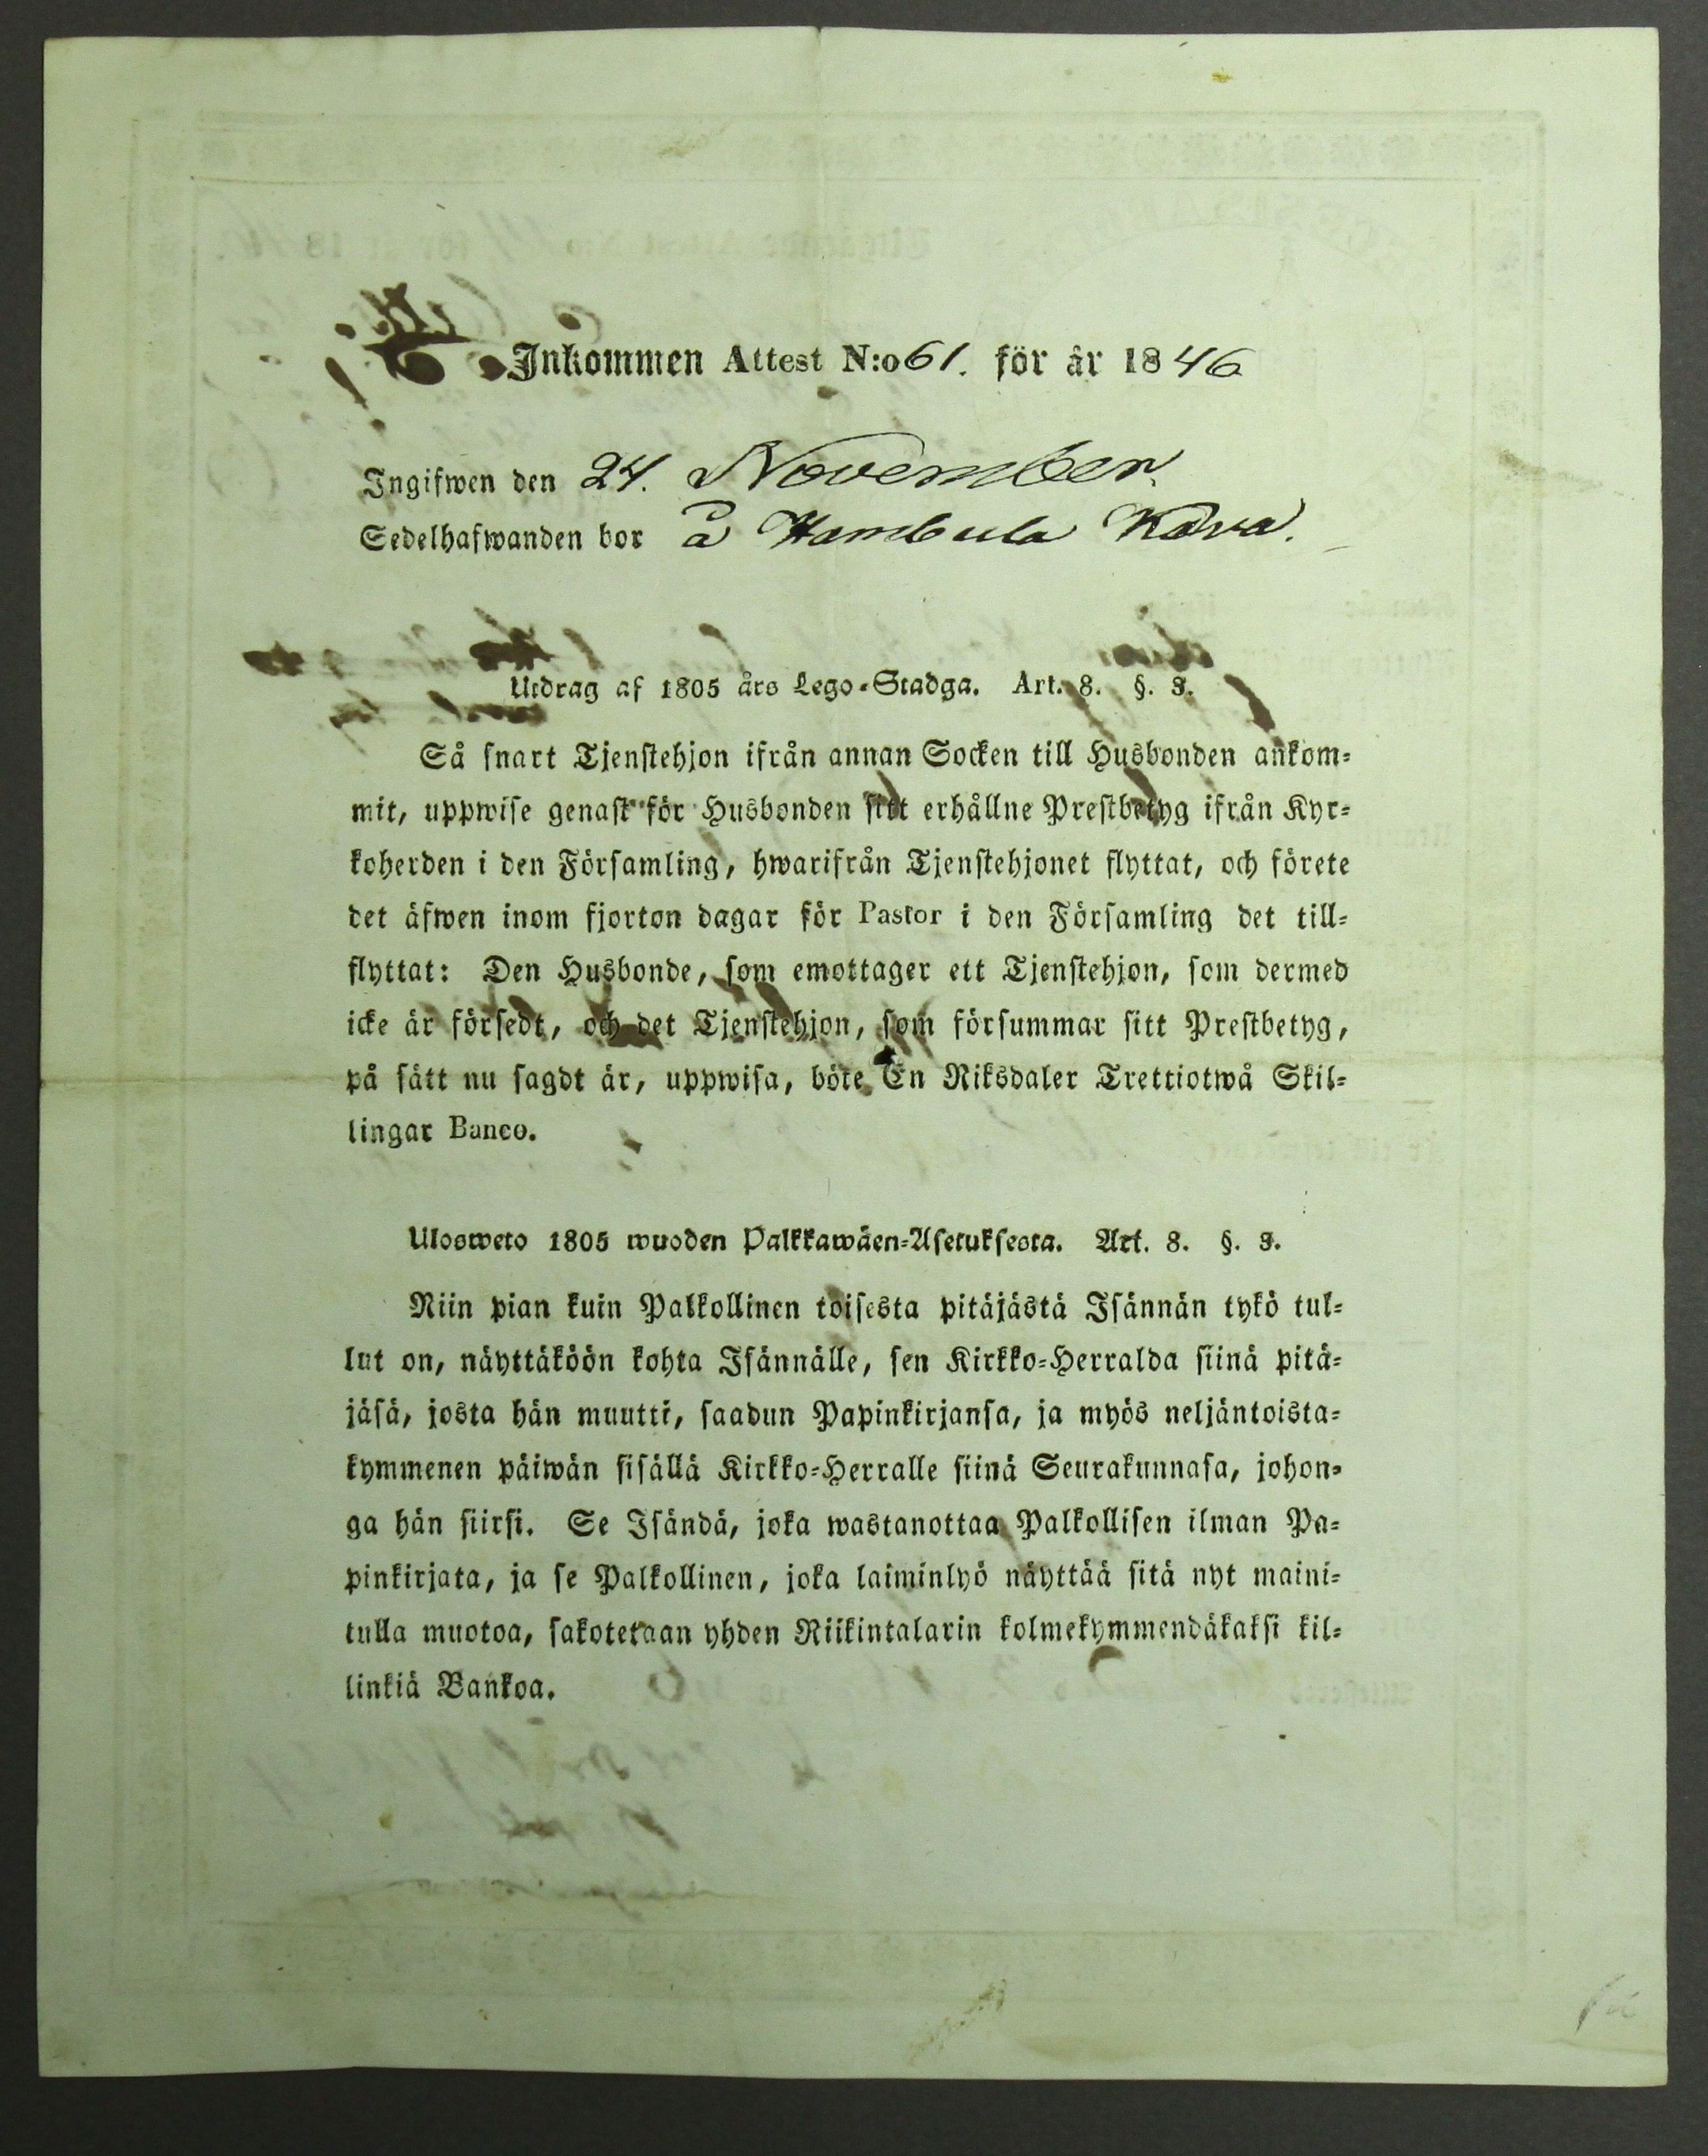 Inkommen Attest N:o 61. för år 1846
Ingifwen den 24. November.
Sedelhafwanden bor å Hambula Kårra.
Utdrag af 1805 års Lego-Stadga. Art. 8. §. 3.
Så snart Tjenstehjon ifrån annan Socken till Husbonden ankom-
mit, uppwise genast för Husbonden sitt erhållne Prestbetyg ifrån Kyr-
koherden i den Församling, hwarifrån Tjenstehjonet flyttat, och förete
det äfwen inom fjorton dagar för Pastor i den Församling det till-
flyttat: Den Husbonde, som emottager ett Tjenstehjon, som dermed
icke är försedt, och det Tjenstehjon, som försummar sitt Prestbetyg,
på sätt nu sagdt är, uppwisa, böte En Riksdaler Trettiotwå Skil-
lingar Banco.
Ulosweto 1805 wuoden Palkkawäen-Asetuksesta. Art. 8. §. 3.
Niin pian kuin Palkollinen toisesta pitäjästä Isännän tykö tul-
lut on, näyttäköön kohta Isännälle, sen Kirkko-Herralda siinä pitä-
jäsä, josta hän muutti, saadun Papinkirjansa, ja myös neljäntoista-
kymmenen päiwän sisällä Kirkko-Herralle siinä Seurakunnasa, johon-
ga hän siirsi. Se Isändä, joka wastanottaa Palkollisen ilman Pa-
pinkirjata, ja se Palkollinen, joka laiminlyö näyttää sitä nyt maini-
tulla muotoa, sakotetaan yhden Riikintalarin kolmekymmendäkaksi kil-
linkiä Bankoa.